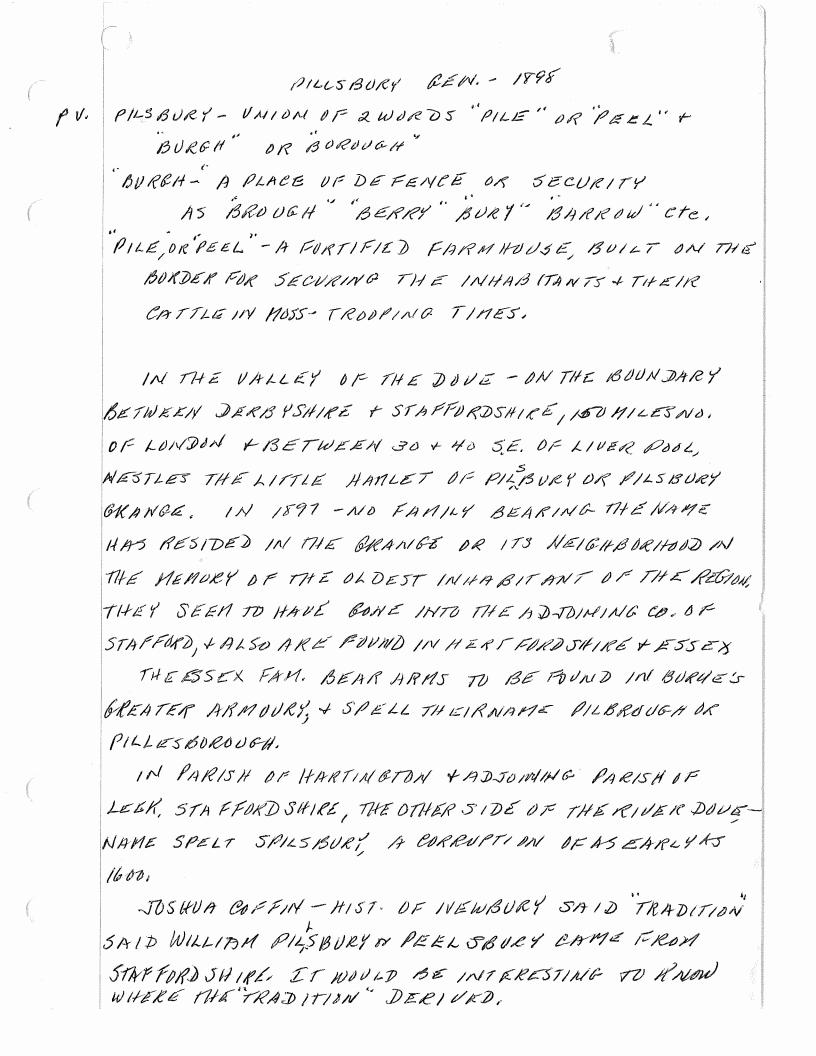 PILLSBURY GEN. - 1898
PV. PILSBURY - UNION OF 2 WORDS "PILE" OR "PEEL" +
"BURGH" OR "BOROUGH"
"BURGH - " A PLACE OF DEFENCE OR SECURITY
AS "BROUGH" "BERRY" "BURY" "BARROW" etc.
"PILE, OR "PEEL" - A FORTIFIED FARMHOUSE, BUILT ON THE
BORDER FOR SECURING THE INHABITANTS + THEIR
CATTLE IN MOSS-TROOPING TIMES.
IN THE VALLEY OF THE DOVE - ON THE BOUNDARY
BETWEEN DERBYSHIRE + STAFFORDSHIRE, 150 MILES NO.
OF LONDON + BETWEEN 30 + 40 S.E. OF LIVERPOOL,
NESTLES THE LITTLE HAMLET OF PILSBURY OR PILSBURY
GRANGE. IN 1897 - NO FAMILY BEARING THE NAME
HAS RESIDED IN THE GRANGE OR ITS NEIGHBORHOOD IN
THE MEMORY OF THE OLDEST INHABITANT OF THE REGION.
THEY SEEM TO HAVE GONE INTO THE ADJOINING CO. OF
STAFFORD, + ALSO ARE FOUND IN HERTFORDSHIRE + ESSEX
THE ESSEX FAM. BEAR ARMS TO BE FOUND IN BURKE'S
GREATER ARMOURY, + SPELL THEIR NAME PILBROUGH OR
PILLESBOROUGH.
IN PARISH OF HARTINGTON + ADJOINING PARISH OF
LEEK, STAFFORDSHIRE, THE OTHER SIDE OF THE RIVER DOVE -
NAME SPELT SPILSBURY, A CORRUPTION OF AS EARLY AS
1600.
JOSHUA COFFIN - HIST. OF NEWBURY SAID "TRADITION"
SAID WILLIAM PILLSBURY or PEELSBURY CAME FROM
STAFFORDSHIRE. IT WOULD BE INTERESTING TO KNOW
WHERE THE "TRADITION" DERIVED.